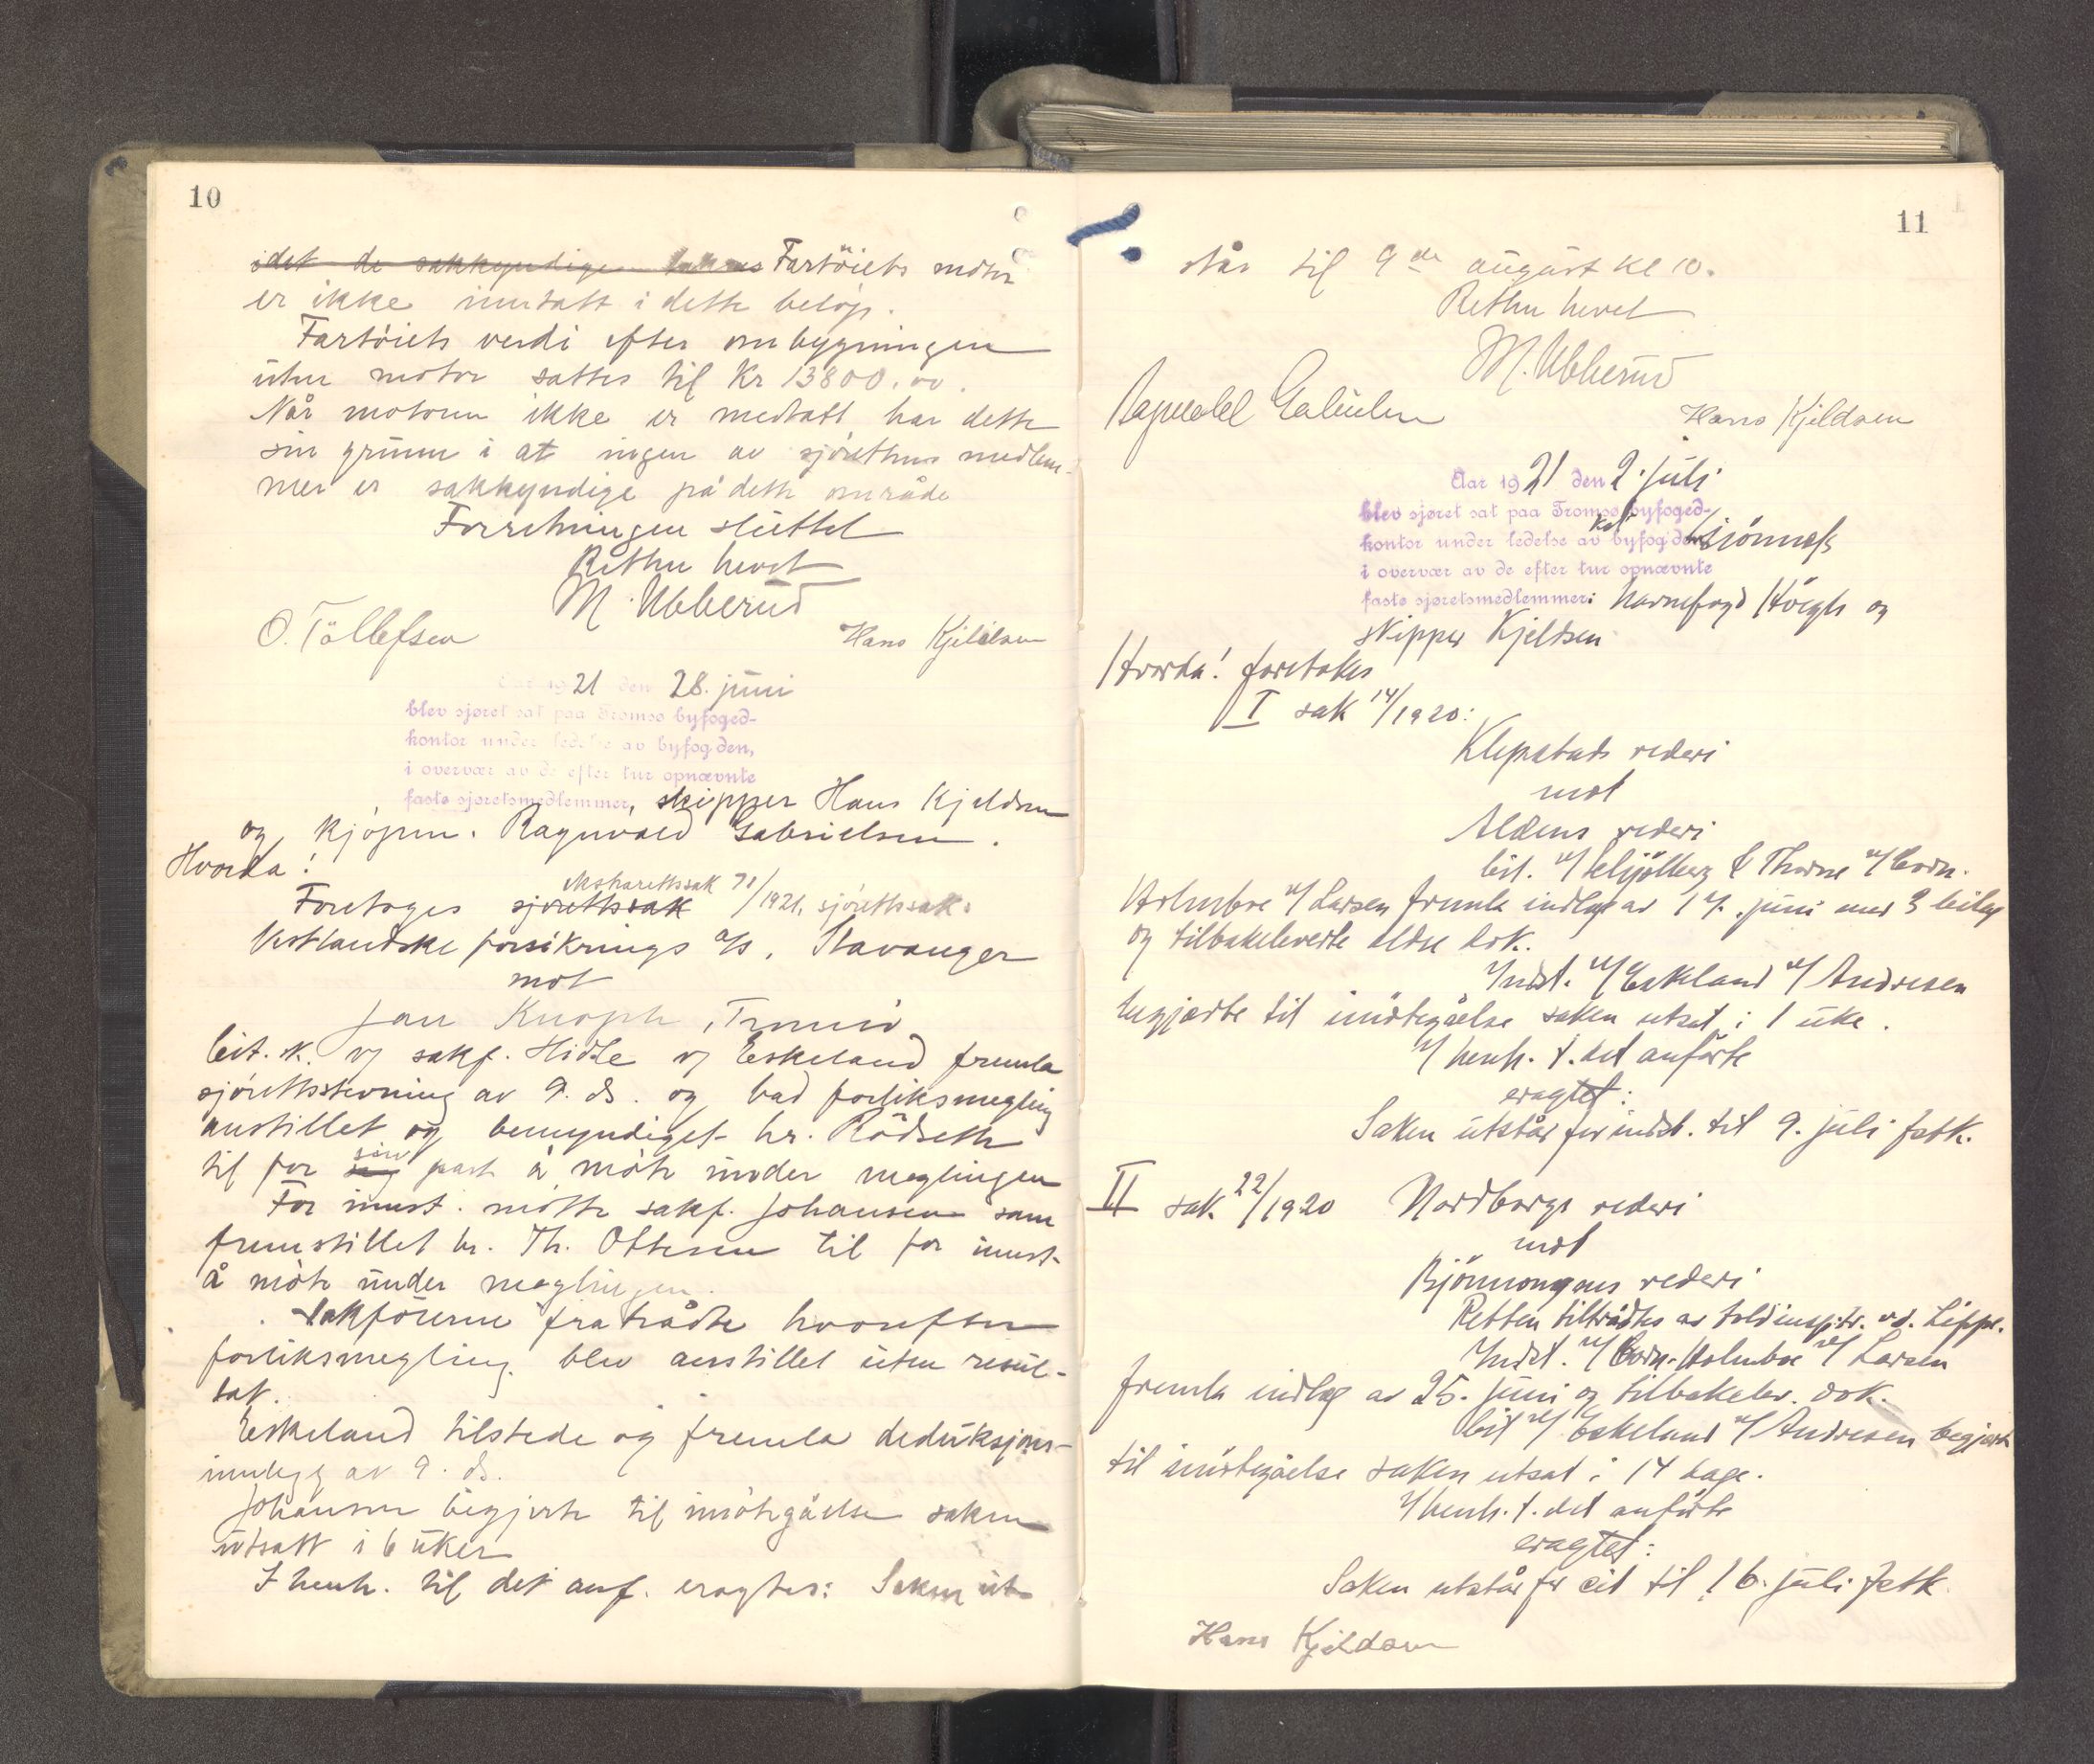 10
idet de sakkyndige Fartöiets motor
er ikke inntatt i dette beløp.
Fartöiets verdi efter ombygningen
uten motor sattes til Kr 13800.00.
Når motoren ikke er medtatt har dette
sin grunn i at ingen av sjörettens medlem-
mer er sakkyndige på dette område
Forretningen sluttet
Retten hevet
M. Ubberud
O. Töllefsen
Hans Kjeldsen
Aar 1921 den 28. juni
blev sjøret sat paa Tromsø byfoged-
kontor under ledelse av byfogden,
i overvær av de efter tur opnævnte
faste sjøretsmedlemmer, skipper Hans Kjeldsen
og kjöpm. Ragnvald Gabrielsen.
Hvorda!
ekstrarettssak 71/1921, sjörettssak:
Foretoges sjörettssak
Vestlandske forsikrings a/s, Stavanger
mot
Jan Knoph, Tromsö
Cit. v/ sakf. Hidle v/ Eskeland fremla
sjörettsstevning av 9. ds. og bad forliksmegling
anstillet og bemyndiget hr. Rödseth
til for sin part å möte under meglingen
For innst. mötte sakf. Johansen som
fremstillet hr. Th. Ottesen til for innst.
å möte under meglingen.
Sakförerne fratrådte hvorefter
forliksmegling blev anstillet uten resul-
tat.
Eskeland tilstede og fremla deduksjons-
innlegg av 9. ds.
Johansen begjerte til imötegåelse saken
utsatt i 6 uker
I henh. til det anf. eragtes: Saken ut-
11
står til 9de august kl 10.
Retten hevet
M. Ubberud
Ragnvald Gabrielsen
Hans Kjeldsen
Aar 1921 den 2. juli
blev sjøret sat paa Tromsø byfoged-
kontor under ledelse av byfogdens Kst Sjönnes
i overvær av de efter tur opnævnte
faste sjøretsmedlemmer: havnefogd Höegh og
skipper Kjeldsen
Hvorda! foretokes
I sak 14/1920:
Klepstads rederi
mot
Aldens rederi
Cit. v/ Schjölberg & Thorne v/ Corn.
Holmboe v/ Larsen fremla indlæg av 17. juni med 3 bilag
og tilbakeleverte eldre dok.
Indst. v/ Eskeland v/ Andresen
begjærte til imötegåelse saken utsat i 1 uke.
I henh. t. det anförte
eragtet:
Saken utstår for indst. til 9. juli fstk.
II sak 22/1920 Nordborgs rederi
mot
Björnungens rederi
Retten tiltrådtes av toldinsp. v.d. Lippe.
Indst. v/ Corn. Holmboe v/ Larsen
fremla indlæg av 25. juni og tilbakelev. dok.
Cit v/ Eskeland v/ Andresen begjærte
til imötegåelse saken utsat i 14 dage.
I henh. t. det anförte
eragtet:
Saken utstår for cit til 16. juli fstk.
Hans Kjeldsen